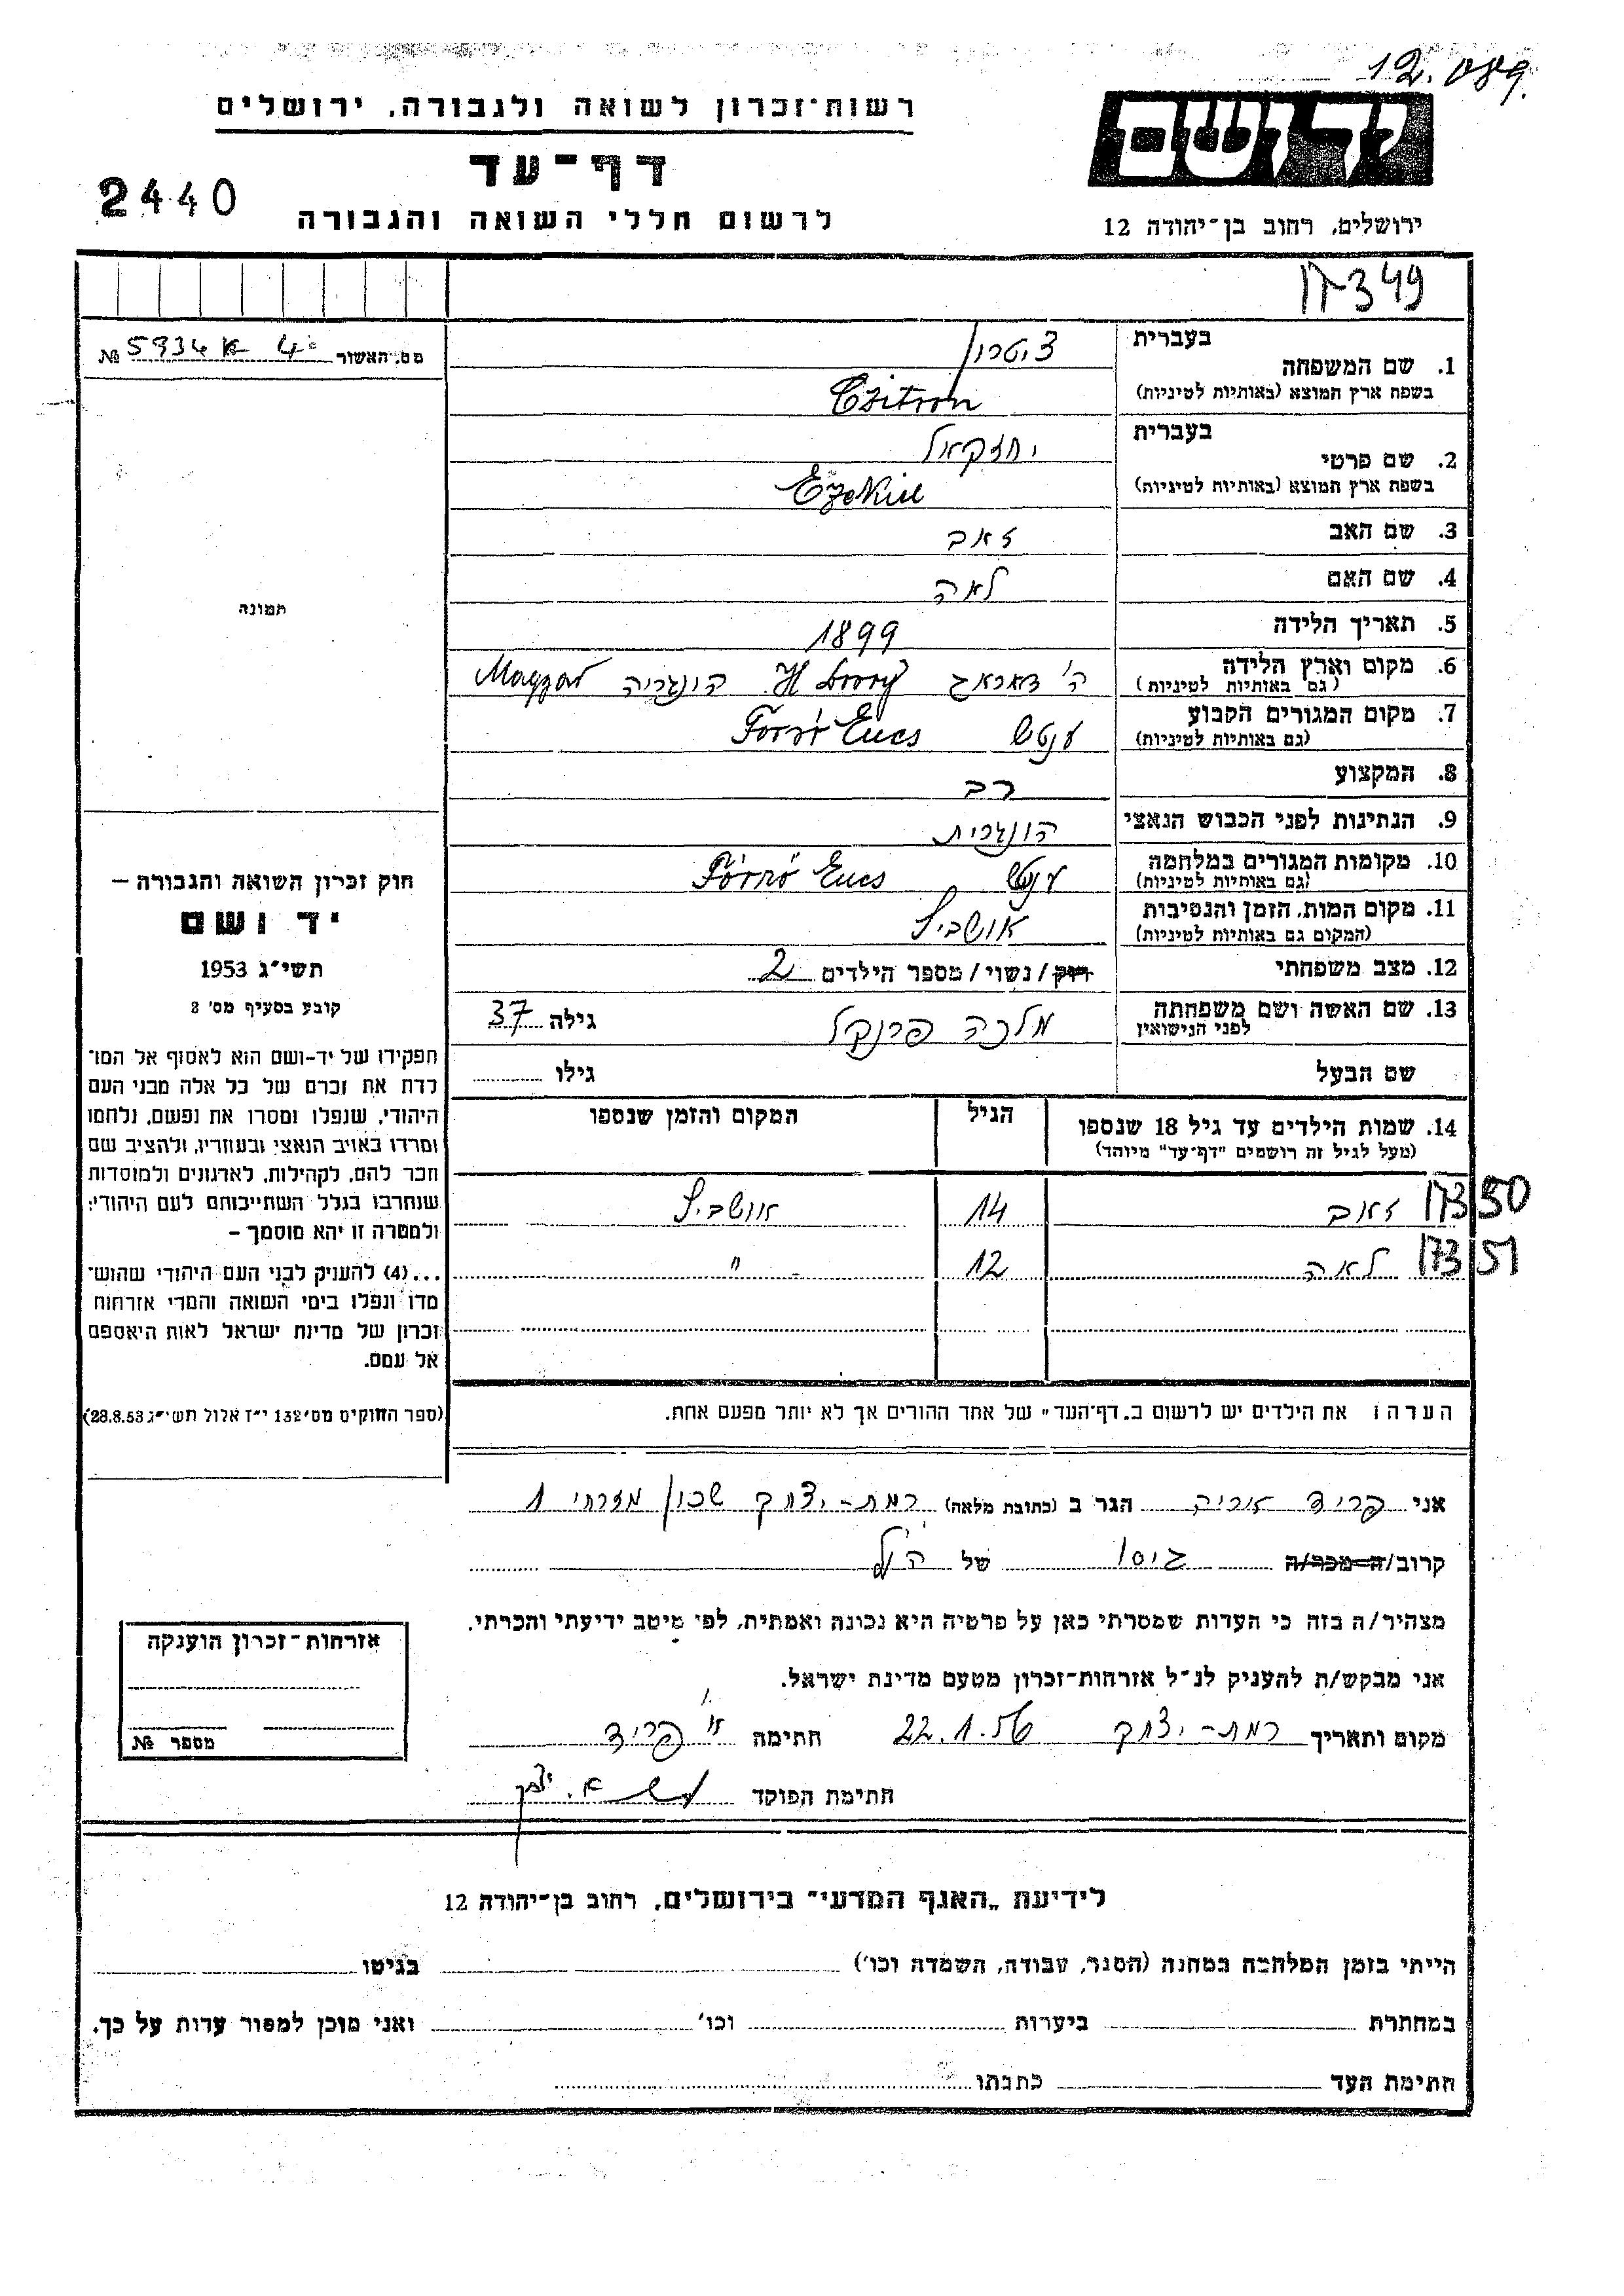 12.089
רשות־זכרון לשואה ולגבורה, ירושלים
יד ושם
דף־עד
2440
לרשום חללי השואה והגבורה
ירושלים, רחוב בן־יהודה 12
17349
מס. האשור 5934 № 
בעברית ציטרון
1. שם המשפחה
בשפת ארץ המוצא (באותיות לטיניות) Czitron
בעברית יחזקאל
2. שם פרטי
בשפת ארץ המוצא (באותיות לטיניות) Ezekiel
3. שם האב זאב
4. שם האם לאה
תמונה
5. תאריך הלידה 1899
6. מקום וארץ הלידה ה' הונגריה
(גם באותיות לטיניות)
7. מקום המגורים הקבוע ענטש Forró Encs
(גם באותיות לטיניות)
8. המקצוע רב
9. הנתינות לפני הכבוש הנאצי הונגרית
10. מקומות המגורים במלחמה ענטש Forró Encs
(גם באותיות לטיניות)
11. מקום המות, הזמן והנסיבות אושביץ
(המקום גם באותיות לטיניות)
12. מצב משפחתי רווק/נשוי/מספר הילדים 2
13. שם האשה ושם משפחתה מלכה פרנקל גילה 37
לפני הנישואין
שם הבעל גילו
14. שמות הילדים עד גיל 18 שנספו הגיל המקום והזמן שנספו
(מעל לגיל זה רושמים "דף־עד" מיוחד)
17350 זאב 14 אושביץ
17351 לאה 12 "
חוק זכרון השואה והגבורה —
יד ושם
תשי"ג 1953
קובע בסעיף מס' 2
תפקידו של יד-ושם הוא לאסוף אל המו־
לדת את זכרם של כל אלה מבני העם
היהודי, שנפלו ומסרו את נפשם, נלחמו
ומרדו באויב הנאצי ובעוזריו, ולהציב שם
וזכר להם, לקהילות, לארגונים ולמוסדות
שנחרבו בגלל השתייכותם לעם היהודי;
ולמטרה זו יהא מוסמך —
...(4) להעניק לבני העם היהודי שהוש־
מדו ונפלו בימי השואה והמרי אזרחות
זכרון של מדינת ישראל לאות היאספם
אל עמם.
(ספר החוקים מס' 132 י"ז אלול תשי"ג 28.8.53)
הערה: את הילדים יש לרשום ב„דף־העד" של אחד ההורים אך לא יותר מפעם אחת.
אני פריד אריה הגר ב (כתובת מלאה) רמת-יצחק שכון מזרחי 1
קרוב/ה מכר/ה גיסו של הנ"ל
מצהיר/ה בזה כי העדות שמסרתי כאן על פרטיה היא נכונה ואמתית, לפי מיטב ידיעתי והכרתי.
אני מבקש/ת להעניק לנ"ל אזרחות־זכרון מטעם מדינת ישראל.
מקום ותאריך רמת-יצחק 22.1.56 חתימה א' פריד
חתימת הפוקד
אזרחות־זכרון הוענקה
מספר №
לידיעת „האגף המדעי" בירושלים, רחוב בן־יהודה 12
הייתי בזמן המלחמה במחנה (הסגר, עבודה, השמדה וכו') בגיטו
במחתרת ביערות וכו' ואני מוכן למסור עדות על כך.
חתימת העד כתבתו